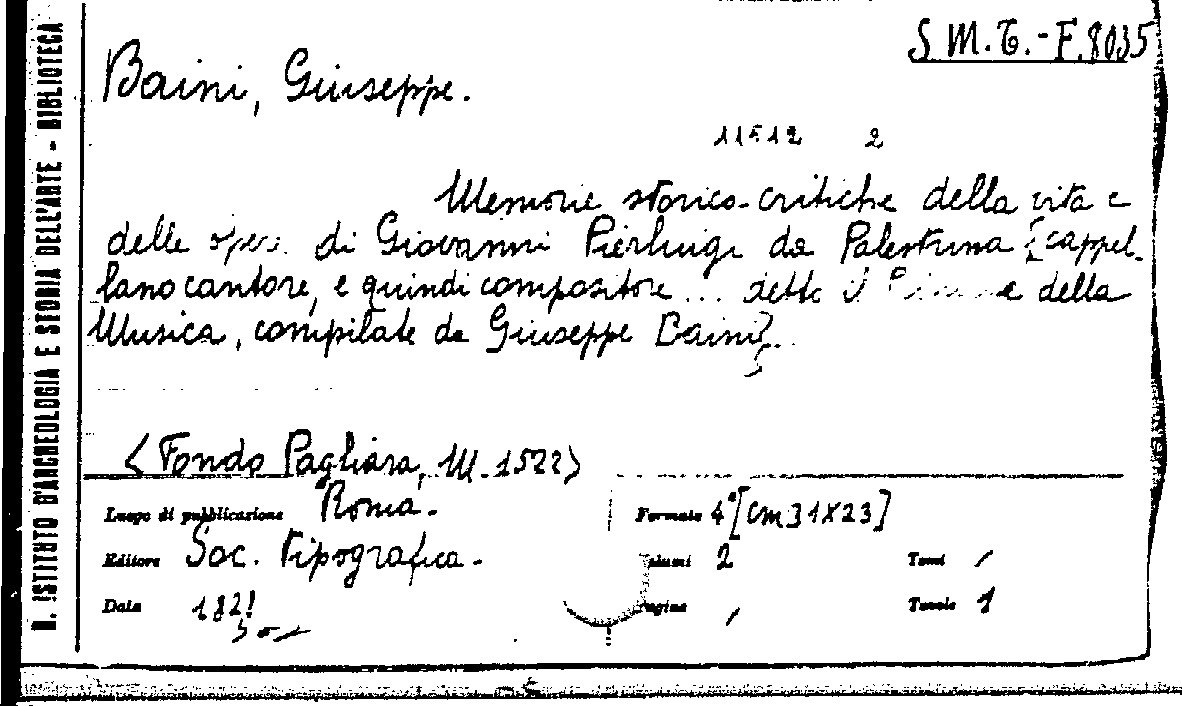 R. ISTITUTO D'ARCHEOLOGIA E STORIA DELL'ARTE - BIBLIOTECA
S.M.T.-F.8035
Baini, Giuseppe.
11512 2
Memorie storico-critiche della vita e
delle opere di Giovanni Pierluigi da Palestrina [cappel-
lano cantore, e quindi compositore ... detto il della
Musica, compilate da Giuseppe Baini]..
<Fondo Pagliara, M. 1522>
Luogo di pubblicazione Roma. Formato 4° [cm 31X23]
Editore Soc. Tipografica. Volumi 2 Tomi /
Data Pagine / Tavole 1